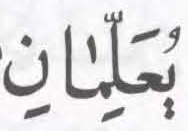 يُعَلِّمٰانِ